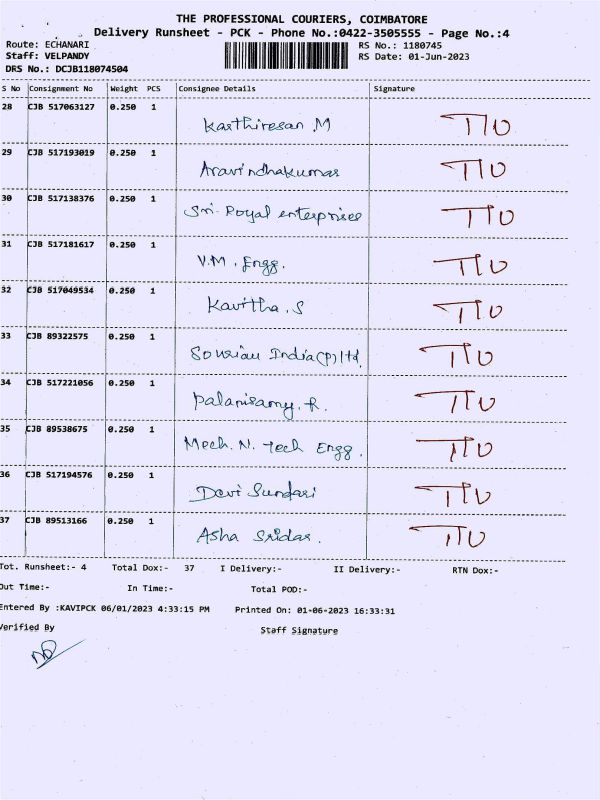 THE PROFESSIONAL COURIERS, COIMBATORE
Delivery Runsheet - PCK - Phone No.:0422-3505555 - Page No.:4
Route: ECHANARI RS No.: 1180745
Staff: VELPANDY RS Date: 01-Jun-2023
DRS No.: DCJB118074504
S No Consignment No Weight PCS Consignee Details Signature
28 CJB 517063127 0.250 1 Karthiresan .M TTU
29 CJB 517193019 0.250 1 Aravindhakumar TTU
30 CJB 517138376 0.250 1 Sri Royal enterprises TTU
31 CJB 517181617 0.250 1 V.M. Engg. TTU
32 CJB 517049534 0.250 1 Kavitha. S TTU
33 CJB 89322575 0.250 1 India(P)ltd. TTU
34 CJB 517221056 0.250 1 Palanisamy. R. TTU
35 CJB 89538675 0.250 1 Mech. N. Tech Engg. TTU
36 CJB 517194576 0.250 1 Devi Sundari TTU
37 CJB 89513166 0.250 1 Asha Sridar. TTU
Tot. Runsheet:- 4 Total Dox:- 37 I Delivery:- II Delivery:- RTN Dox:-
Out Time:- In Time:- Total POD:-
Entered By :KAVIPCK 06/01/2023 4:33:15 PM Printed On: 01-06-2023 16:33:31
Verified By Staff Signature